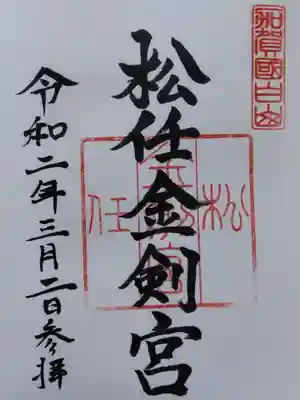 加賀國白山
松任金剣宮
松任
令和二年三月二日参拝